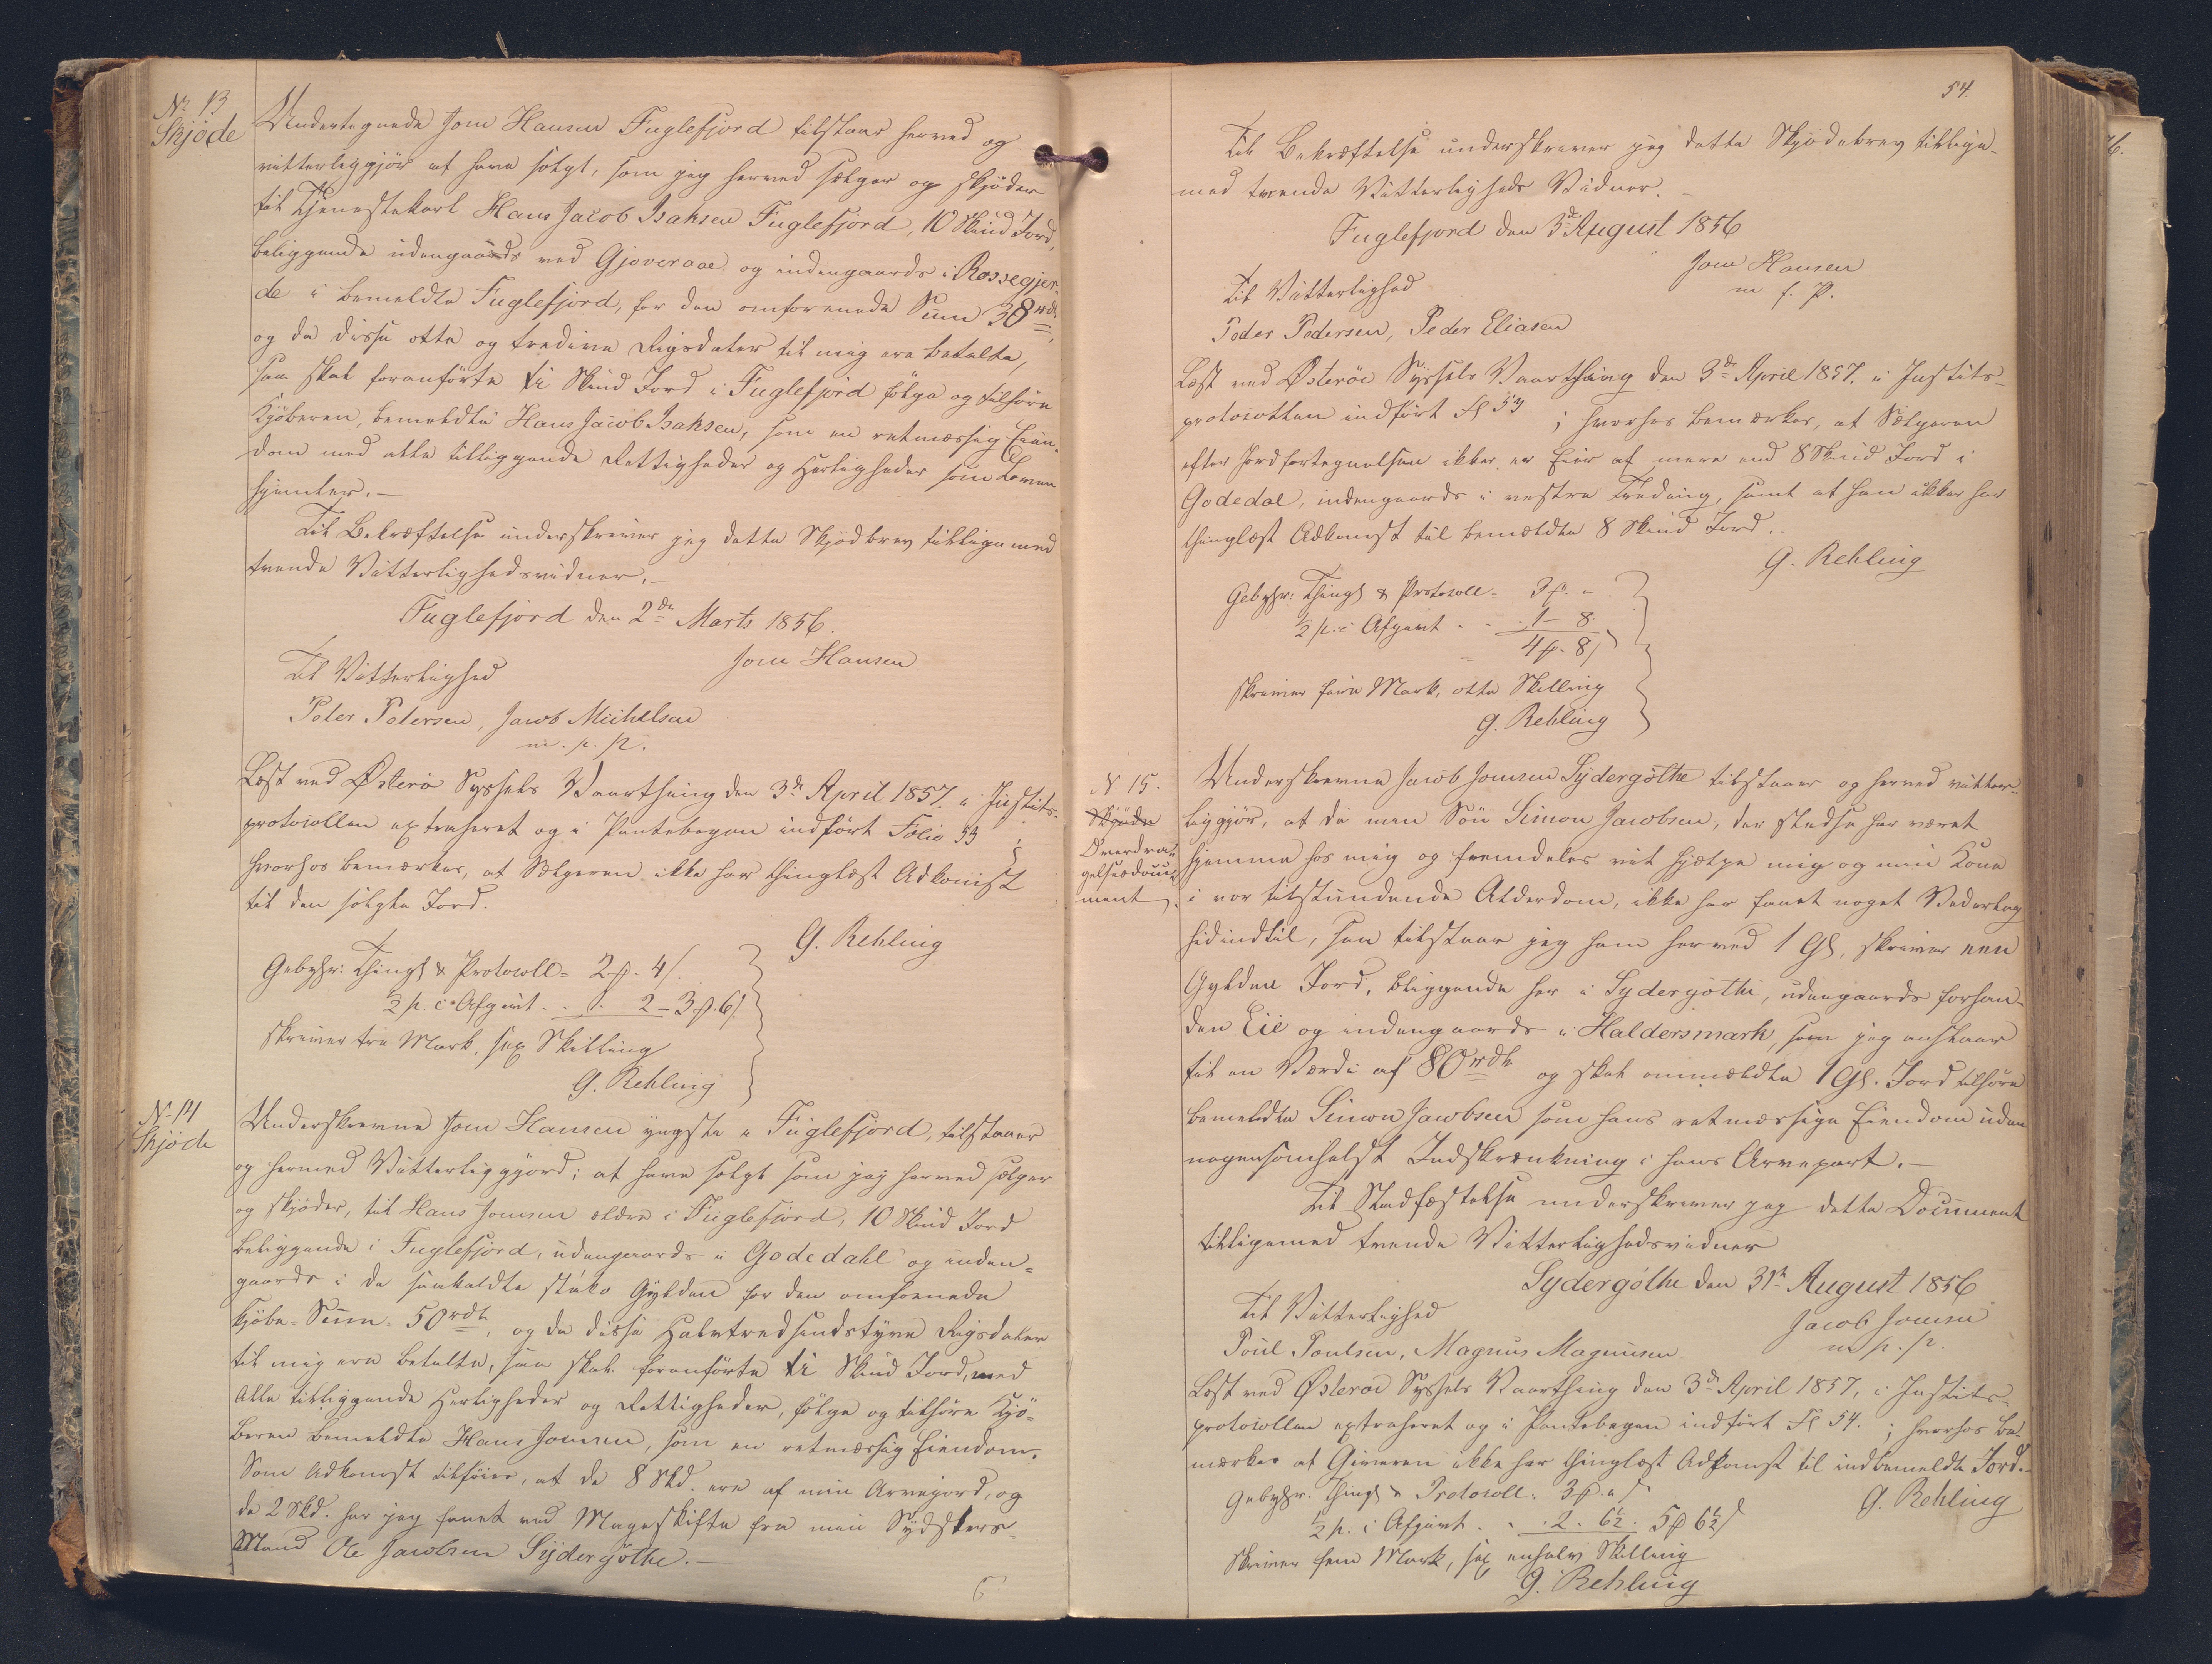 No 13
Skjöde
Undertegnede Jom Hansen Fuglefjord tilstaar herved og
vitterliggjör at have solgt, som jeg herved sælger og skjöder
til Tjenestekarl Hans Jacob Isaksen Fuglefjord, 10 Skind Jord,
beliggende udengaards ved Gjoveraae og indengaards i Rossegjer-
de i bemeldte Fuglefjord, for den omforenede Sum 38 rd,
og da disse otte og tredive Rigsdaler til mig ere betalte,
saa skal foranförte ti Skind Jord i Fuglefjord fölge og tilhöre
Kjöberen, bemeldte Hans Jacob Isaksen, som en retmæssig Eien-
dom med alle tilliggende Rettigheder og Herligheder som Loven
hjemler.-
Til Bekræftelse underskriver jeg dette Skjödbrev tilligemed
tvende Vitterlighedsvidner.-
Fuglefjord den 2de Marts 1856.
Jom Hansen
Til Vitterlighed
Peter Petersen, Jacob Michelsen
m. p. p.
Læst ved Österö Syssels Vaarthing den 3de April 1857. i Justits-
protocollen extraheret og i Pantebogen indfört Folio 53 ;
hvorhos bemærkes, at Sælgeren ikke har thinglæst Adkomst
til den solgte Jord.
G. Rehling
Gebyhr: Thingl & Protocoll- 2 . 4
1/2 p. c Afgivt . . 1. 2 - 3 . 6
skriver tre Mark, sex Skilling
G. Rehling
No 14
Skjöde
Underskrevne Jom Hansen yngste i Fuglefjord, tilstaaer
og hermed Vitterliggjörd; at have solgt som jeg herved sælger
og skjöder, til Hans Jomsen ældre i Fuglefjord, 10 Skind Jord
beliggende i Fuglefjord, udengaards i Godedahl og inden-
gaards i de saakaldte Gylden for den omforenede
Kjöbe-Sum. 50 rdl, og da disse Halvtredsindstyve Rigsdaler
til mig ere betalte, saa skal foranförte ti Skind Jord, med
Alle tilliggende Herligheder og Rettigheder, fölge og tilhöre Kjö-
beren bemeldte Hans Jomsen, som en retmæssig Eiendom.
Som Adkomst tilföies, at de 8 Skd. ere af min Arvejord, og
de 2 Skd. har jeg faaet ved Mageskifte fra min
Mand Ole Jacobsen Sydergöthe.-
6
54.
Til Bekræftelse underskriver jeg dette Skjödebrev tillige-
med tvende Vitterligheds Vidner.-
Fuglefjord den 3de August 1856
Jom Hansen
m f. P.
Til Vitterlighed
Peder Pedersen, Peder Eliasen
Læst ved Österöe Syssels Vaarthing den 3de April 1857. i Justits-
protocollen indfört Fl 53 ; hvorhos bemærkes, at Sælgeren
efter Jordfortegnelsen ikke er Eier af mere end 8 Skind Jord i
Godedal, indengaards i vestre Treding, samt at han ikke har
thinglæst Adkomst til bemeldte 8 Skind Jord..
G. Rehling
Gebyhr: Thingl & Protocoll- 3 . -
1/2 p. c Afgivt - - . 1 - 8.
4 . 8
skriver fire Mark, otte Skilling
G. Rehling
N. 15.
Skjöde
Overdra-
gelsesdocu-
ment
Underskrevne Jacob Jomsen Sydergöthe tilstaaer og herved vitter-
liggjör, at da min Sön Simon Jacobsen, der stedse har været
hjemme hos mig og fremdeles vil hjælpe mig og min Kone
i vor tilstundende Alderdom, ikke har faaet noget Vederlag
hidindtil, saa tilstaar jeg ham herved 1 Gl, skriver een
Gylden Jord, beliggende her i Sydergöthe, udengaards forhan-
den Eie og indengaards i Haldersmark, som jeg anslaaer
til en Værdi af 80 rdl og skal ommeldte 1 Gl. Jord tilhöre
bemeldte Simon Jacobsen som hans retmæssige Eiendom uden
nogensomhelst Indskrænkning i hans Arvepart.-
Til Stadfæstelse underskriver jeg dette Document
tilligemed tvende Vitterlighedsvidner
Sydergöthe den 31te August 1856
Til Vitterlighed
Jacob Jomsen
m. p. p.
Poul Poulsen, Magnus Magnusen
Læst ved Österöe Syssels Vaarthing den 3de April 1857, i Justits-
protocollen extraheret og i Pantebogen indfört Fl 54. ; hvorhos be-
mærkes at Giveren ikke har thinglæst Adkomst til indbemeldte Jord.-
G. Rehling
Gebyhr. Thingl & Protocoll. 3 . "
1/2 p. c Afgivt . . . 2. 6 1/2. 5 6 1/2
Skriver fem Mark, sex enhalv Skilling
G. Rehling